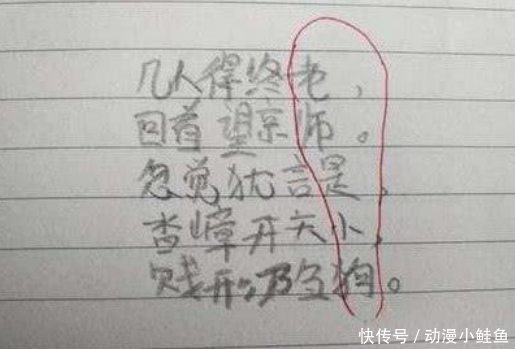 几人得终老，
回首望京师。
忽觉犹言是，
杳嶂开天小，
贱形乃刍狗。
快传号／动漫小鲑鱼